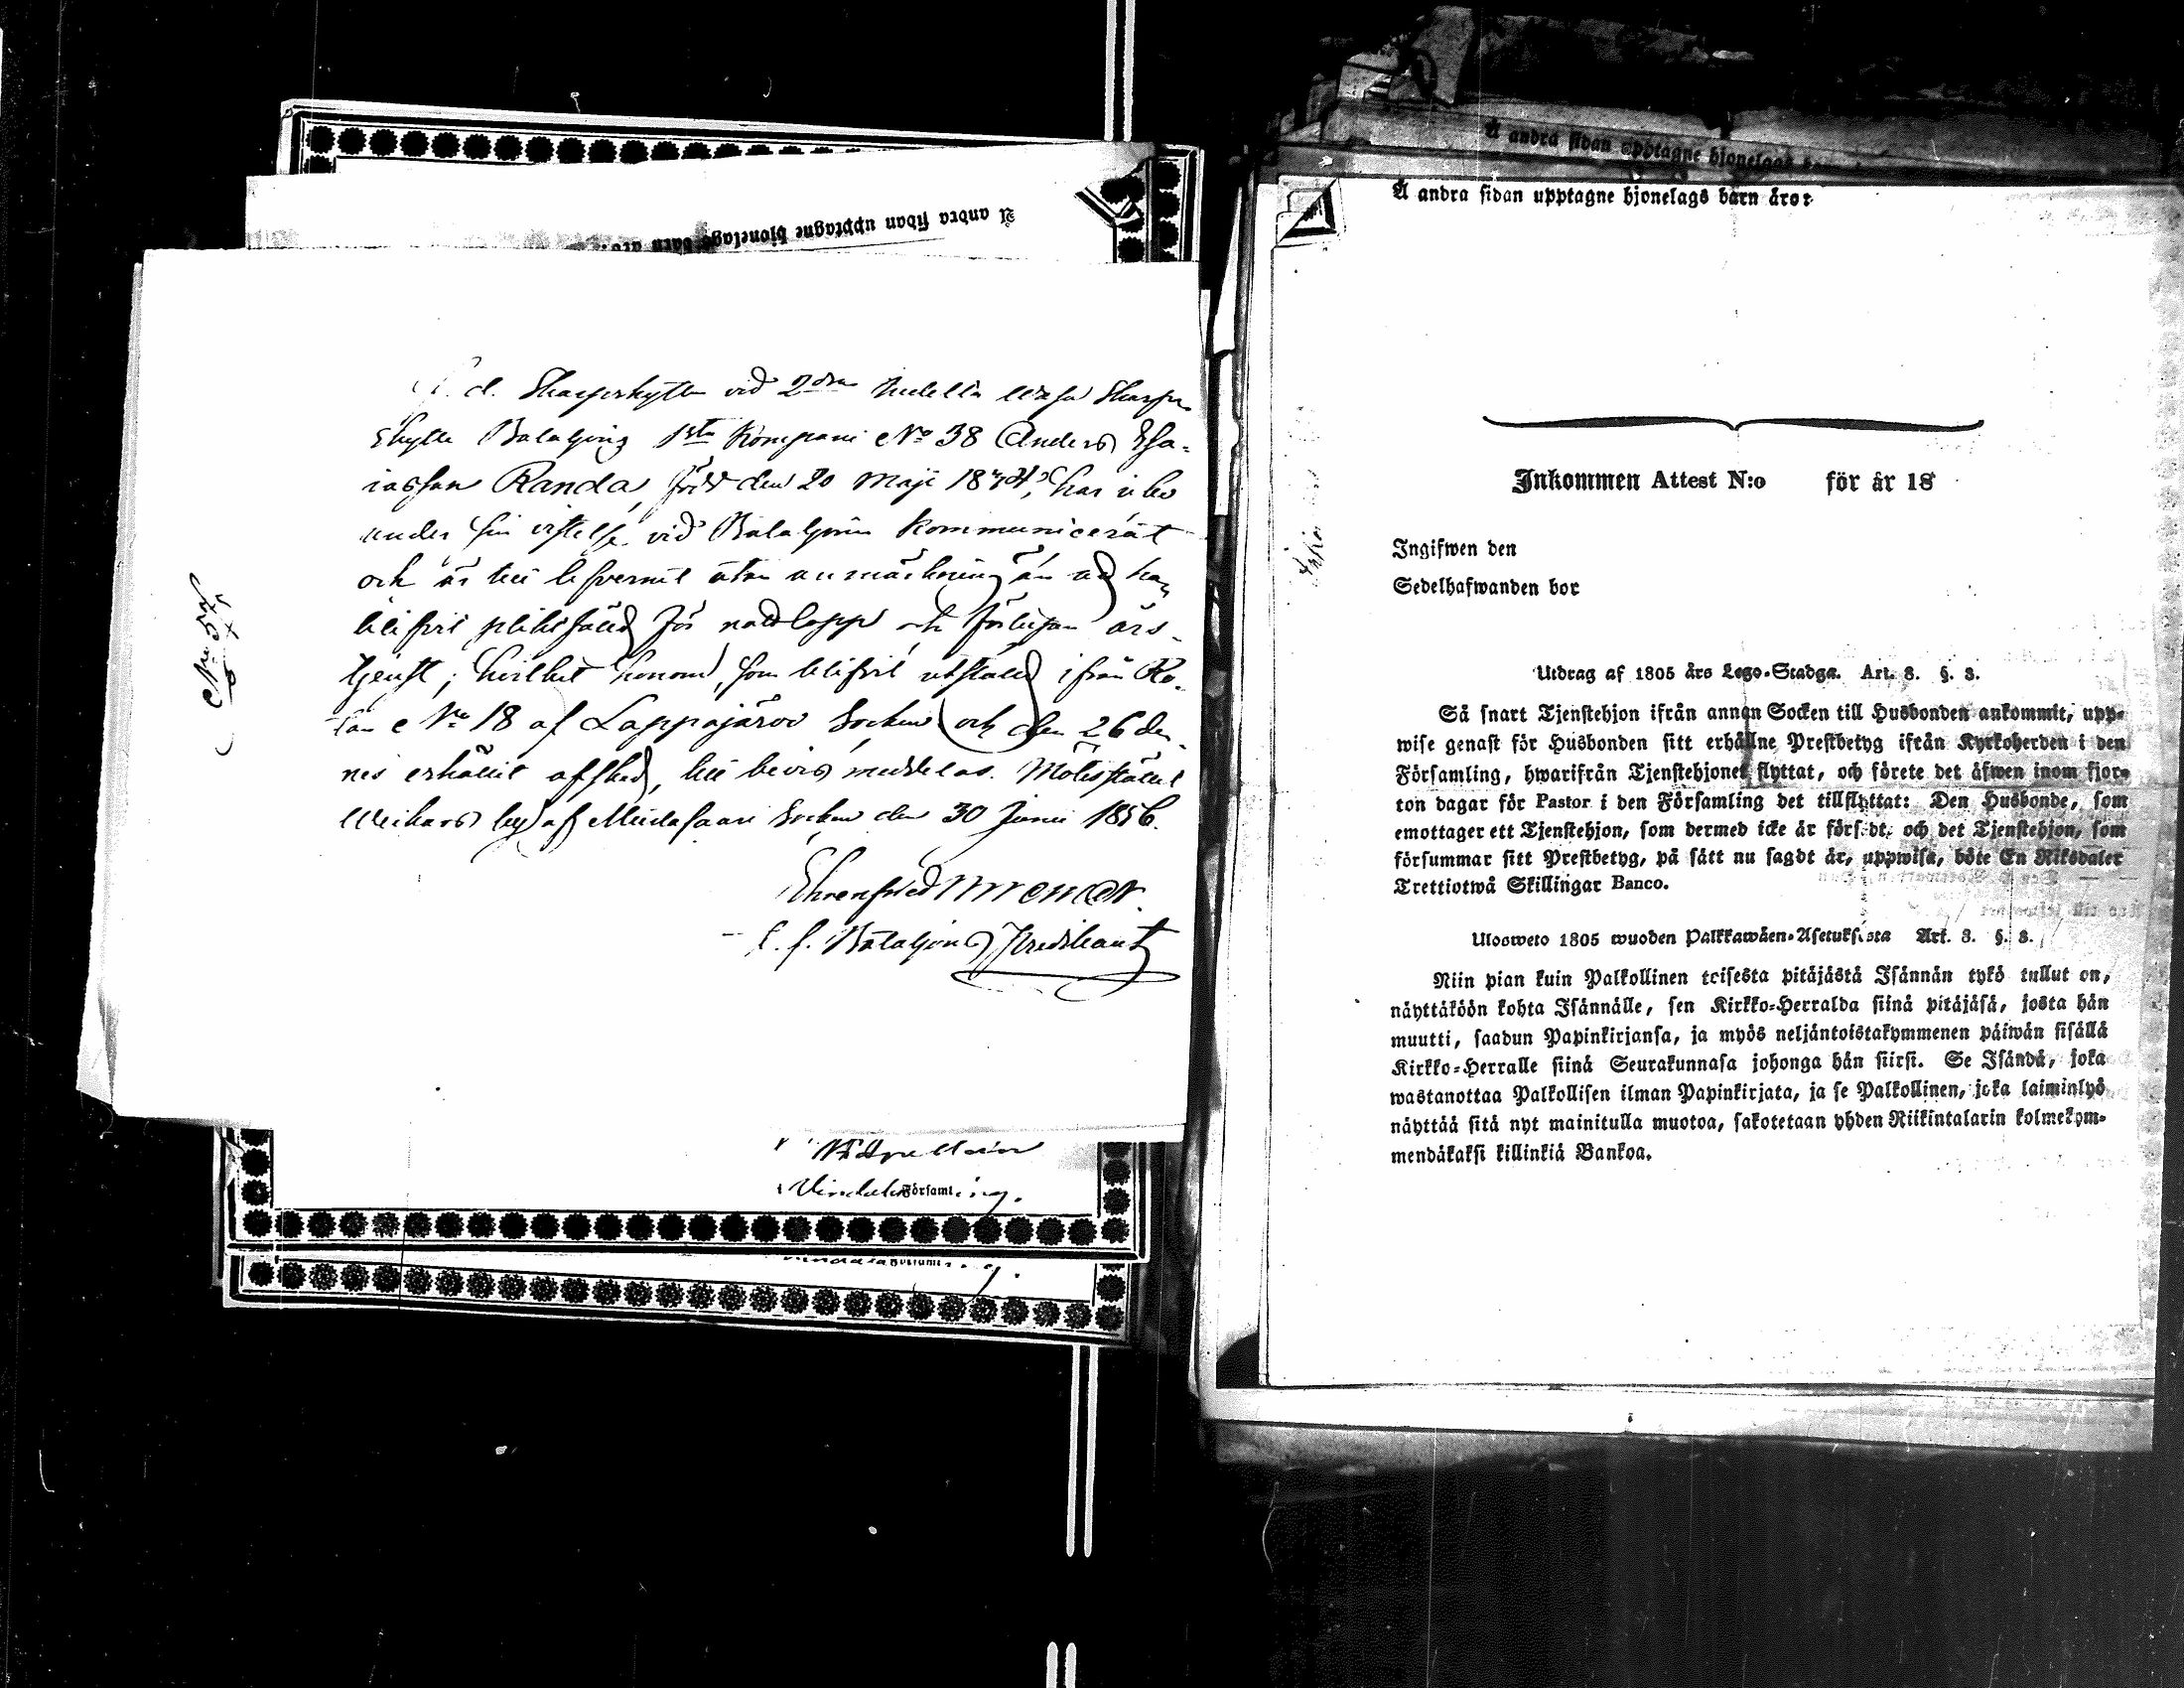 Å andra sidan upptagne hjonelags barn äro:
No 57
F. d. Skarpskytten vid 2dra Indelta Wasa Skarpe-
skytte Bataljons 1sta Kompani No 38 Anders Esa-
iasson Randa, född den 20 Maji 18
under sin vistelse vid Bataljonen kommunicerat
och är till lefvernet utan anmärkning än att han
blifvit pliktfälld för och års-
tjenst; hvilket honom, som blifvit utstäld ifrån Ro-
tan No 18 af Lappajärvi Socken och den 26 den-
nes erhållit afsked, till bevis meddelas. Mötesstället
Weikars by af Mustasaari Socken den 30 Junii 1856.
Ehrenfried
Bataljons Predikant
Kapellan
Vindala Församling.
Församling.
Å andra sidan upptagne hjonelags
Å andra sidan upptagne hjonelags barn äro:
Inkommen Attest N:o för år 18
Ingifwen den
Sedelhafwanden bor
Utdrag af 1805 års Lego-Stadga. Art. 3. §. 3.
Så snart Tjenstehjon ifrån annan Socken till Husbonden ankommit, upp-
wise genast för Husbonden sitt erhållne Prestbetyg ifrån Kyrkoherden i den
Församling, hwarifrån Tjenstehjonet flyttat, och förete det äfwen inom fjor-
ton dagar för Pastor i den Församling det tillflyttat: Den Husbonde, som
emottager ett Tjenstehjon, som dermed icke är försedt, och det Tjenstehjon, som
försummar sitt Prestbetyg, på sätt nu sagdt är, uppwisa, böte En Riksdaler
Trettiotwå Skillingar Banco.
Ulosweto 1805 wuoden Palkkawäen-Asetuksesta Art. 3. §. 3.
Niin pian kuin Palkollinen toisesta pitäjästä Isännän tykö tullut on,
näyttäköön kohta Isännälle, sen Kirkko-Herralda siinä pitäjäsä, josta hän
muutti, saadun Papinkirjansa, ja myös neljäntoistakymmenen päiwän sisällä
Kirkko-Herralle siinä Seurakunnasa johonga hän siirsi. Se Isändä, joka
wastanottaa Palkollisen ilman Papinkirjata, ja se Palkollinen, joka laiminlyö
näyttää sitä nyt mainitulla muotoa, sakotetaan yhden Riikintalarin kolmekym-
mendäkaksi killinkiä Bankoa.